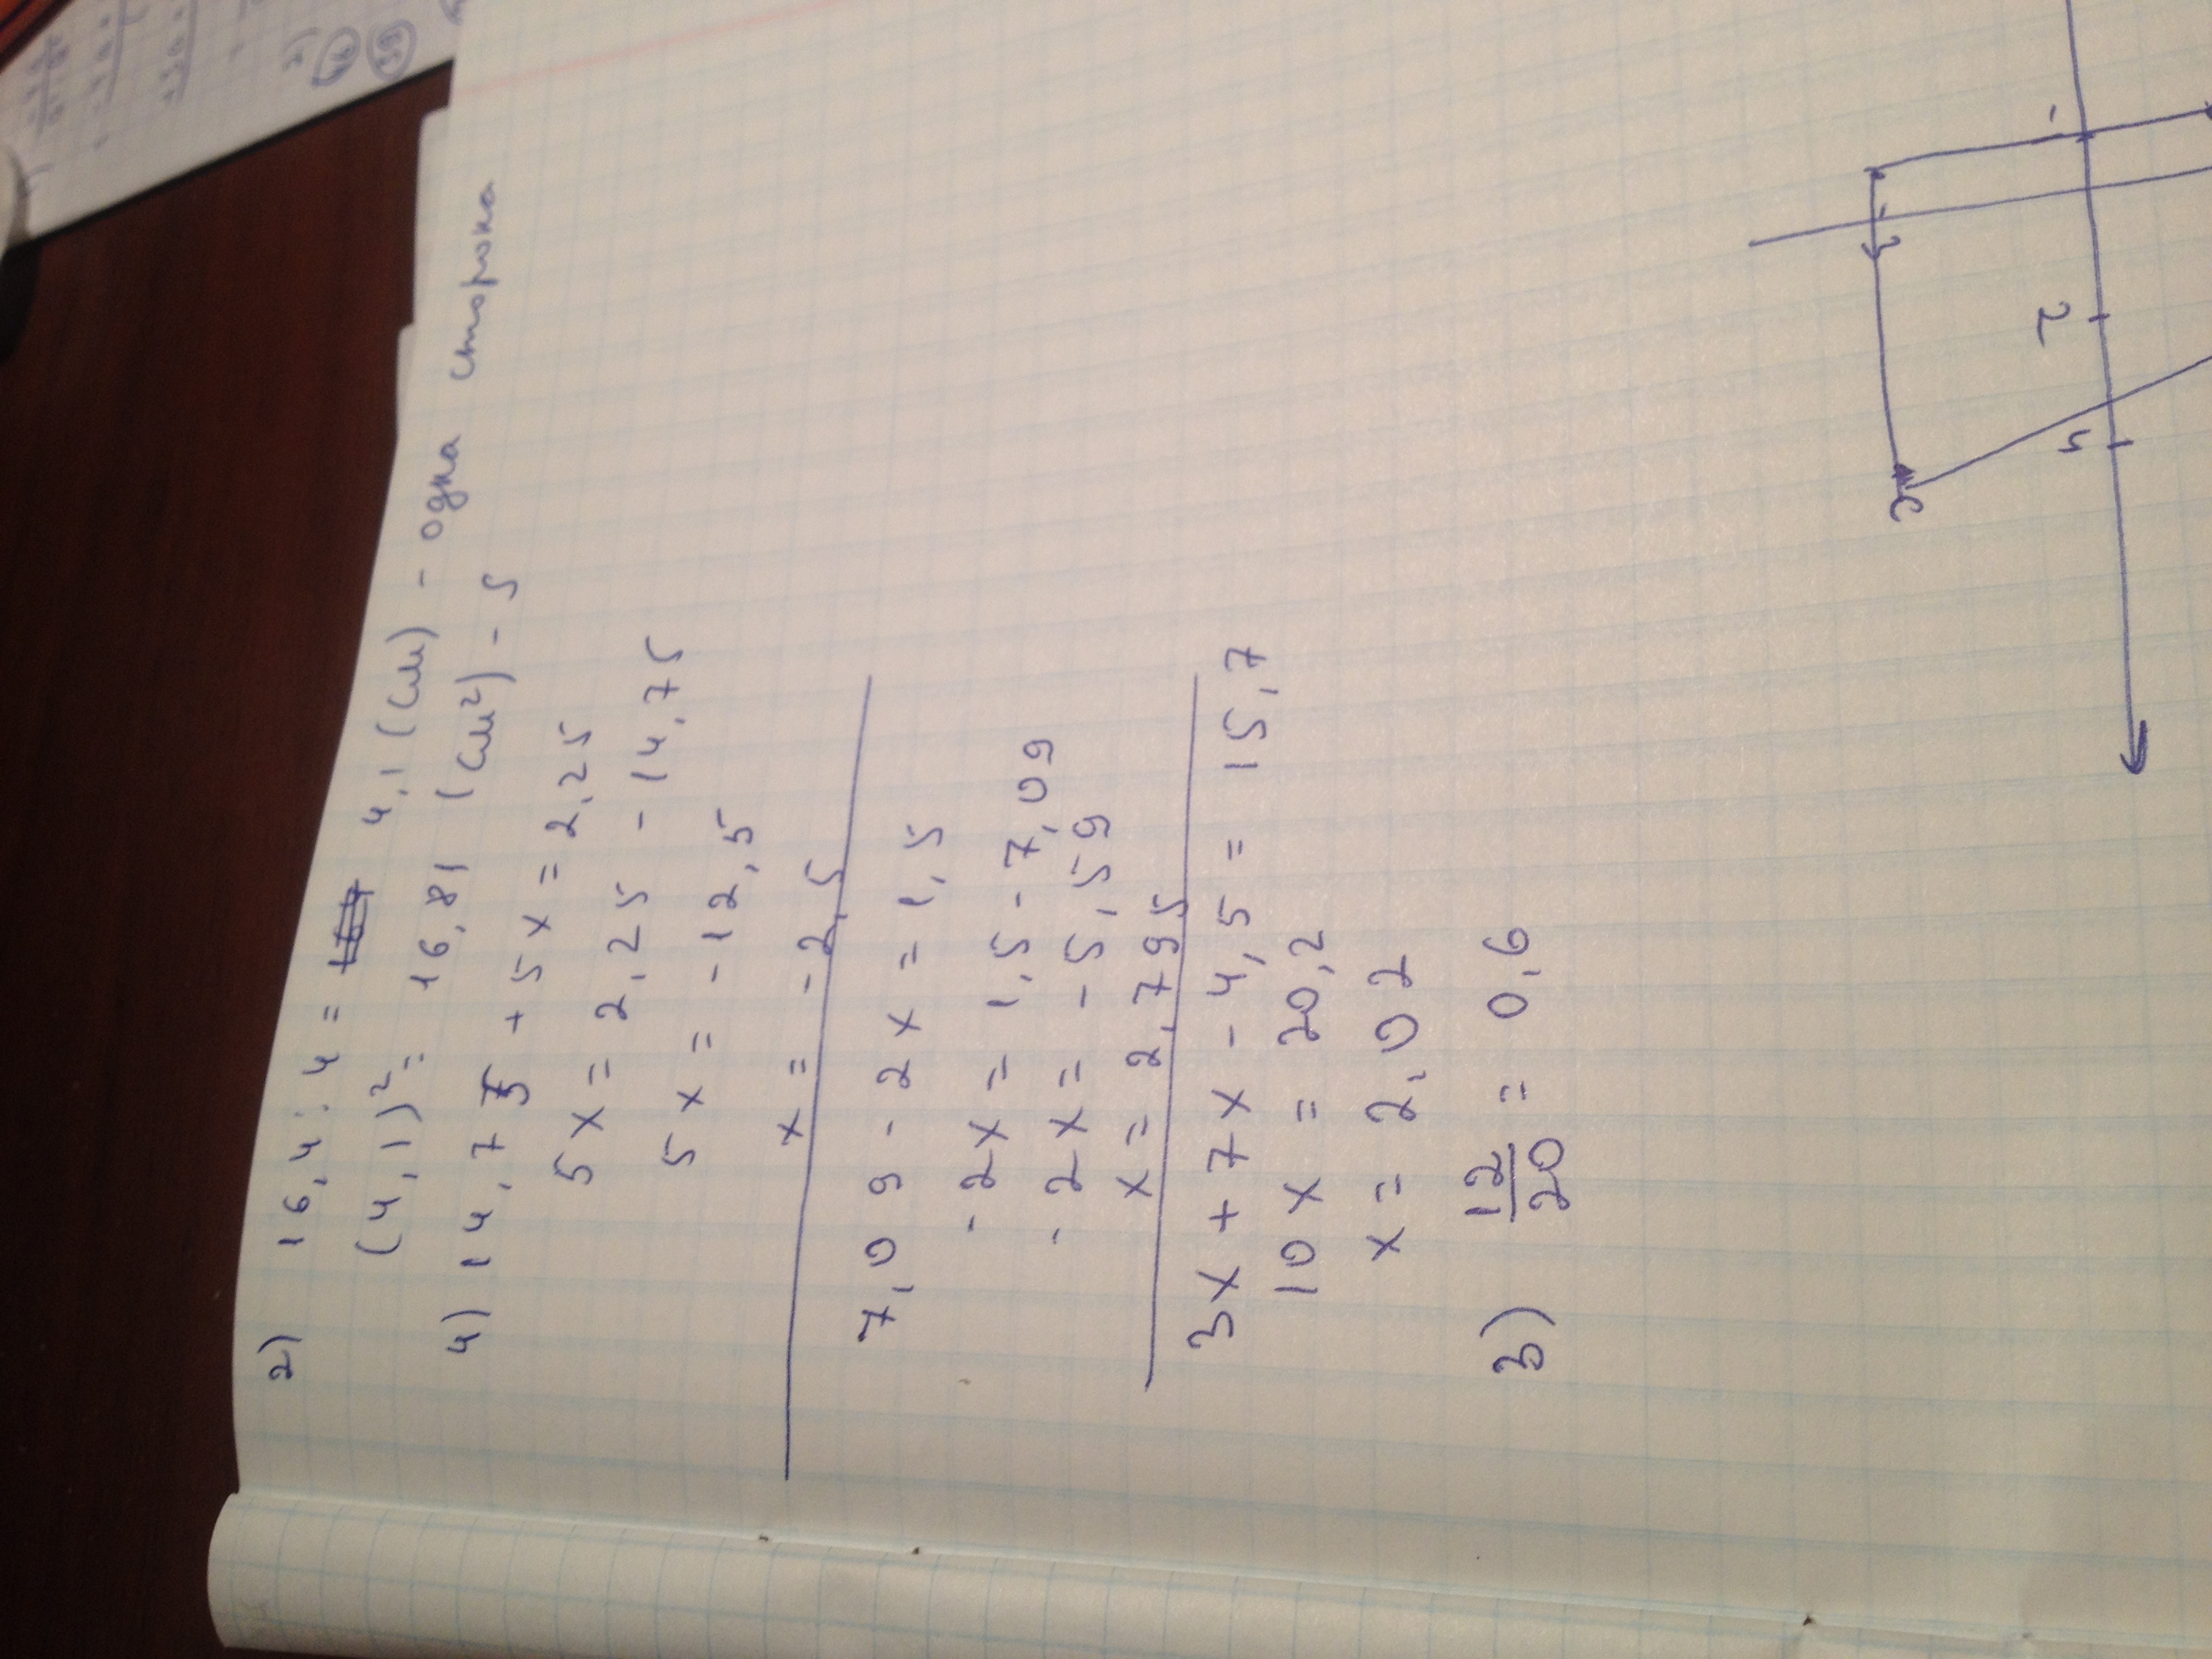 2) 16,4 : 4 = 4,1 (см) - одна сторона
(4,1)² = 16,81 (см²) - S
4) 14,75 + 5x = 2,25
5x = 2,25 - 14,75
5x = -12,5
x = -2,5
7,09 - 2x = 1,5
-2x = 1,5 - 7,09
-2x = -5,59
x = 2,795
3x + 7x - 4,5 = 15,7
10x = 20,2
x = 2,02
3) 12/20 = 0,6
3
2
4